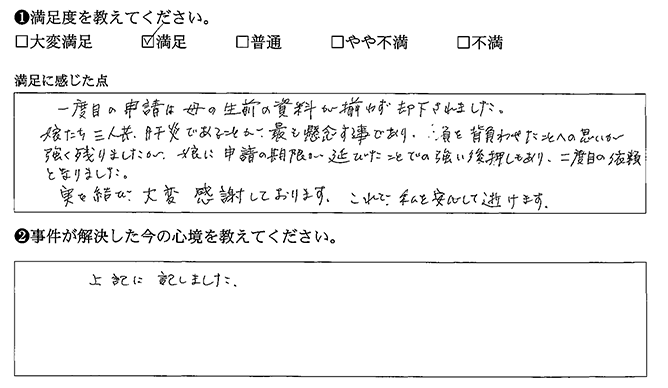 ❶満足度を教えてください。
□大変満足 ☑満足 □普通 □やや不満 □不満
満足に感じた点
一度目の申請は母の生前の資料が揃わず却下されました。
娘たち三人共、肝炎であることが、最も懸念する事であり、∴負を背負わせたことへの思いが
強く残りましたが、娘に申請の期限が延びたことでの強い後押しもあり、二度目の依頼
となりました。
実を結び、大変感謝しております。これで、私も安心して逝けます。
❷事件が解決した今の心境を教えてください。
上記に記しました。